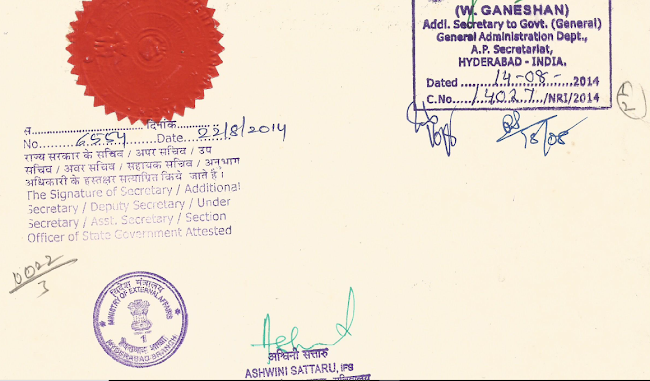 (W. GANESHAN)
Addl. Secretary to Govt. (General)
General Administration Dept.,
A.P. Secretariat,
HYDERABAD - INDIA.
Dated 14-08- 2014
C.No. 14027/NRI/2014
18/08
सं दिनांक
No. 6554 Date 22/8/2014
राज्य सरकार के सचिव / अपर सचिव / उप
सचिव / अवर सचिव / सहायक सचिव / अनुभाग
अधिकारी के हस्तक्षर सत्यापित किये जाते है।
The Signature of Secretary / Additional
Secretary / Deputy Secretary / Under
Secretary / Asst. Secretary / Section
Officer of State Government Attested
0022/3
विदेश मंत्रालय
MINISTRY OF EXTERNAL AFFAIRS
1
HYDERABAD BRANCH
अश्विनी सत्तारु
ASHWINI SATTARU, IFS